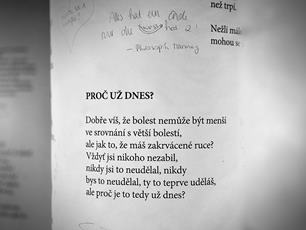 Alles hat ein Ende
nur die Wurst hat 2!
než trpí.
Nežli
mohou se
PROČ UŽ DNES?
Dobře víš, že bolest nemůže být menší
ve srovnání s větší bolestí,
ale jak to, že máš zakrvácené ruce?
Vždyť jsi nikoho nezabil,
nikdy jsi to neudělal, nikdy
bys to neudělal, ty to teprve uděláš,
ale proč je to tedy už dnes?